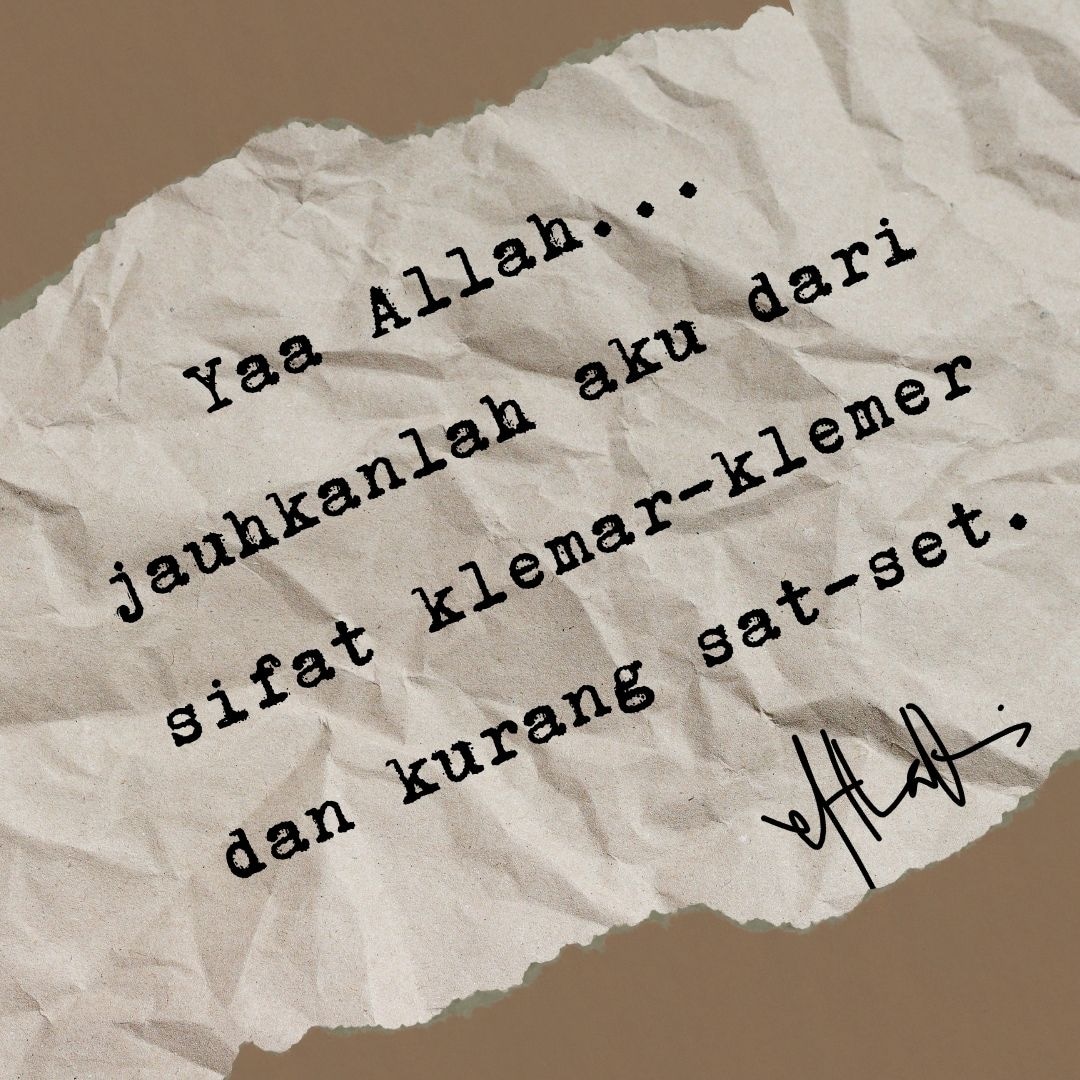 Yaa Allah...
jauhkanlah aku dari
sifat klemar-klemer
dan kurang sat-set.